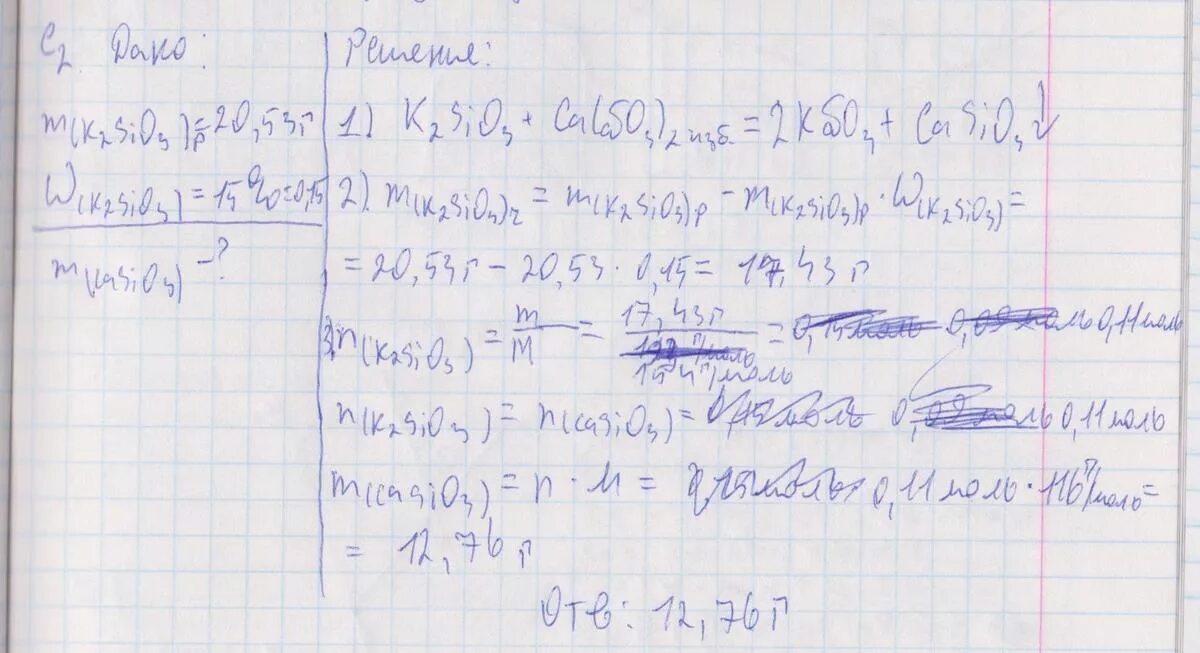 C₂ Дано:
m(K₂SiO₃)р = 20,53г
W(K₂SiO₃) = 15% = 0,15
m(CaSiO₃) – ?
Решение:
1) K₂SiO₃ + Ca(NO₃)₂ изб. = 2KNO₃ + CaSiO₃↓
2) m(K₂SiO₃)ч = m(K₂SiO₃)р – m(K₂SiO₃)р · W(K₂SiO₃) =
= 20,53г – 20,53 · 0,15 = 17,43 г
3) n(K₂SiO₃) = m/M = 17,43г / 154г/моль = 0,11моль
n(K₂SiO₃) = n(CaSiO₃) = 0,11моль
m(CaSiO₃) = n · M = 0,11моль · 116г/моль =
= 12,76 г
Отв: 12,76г